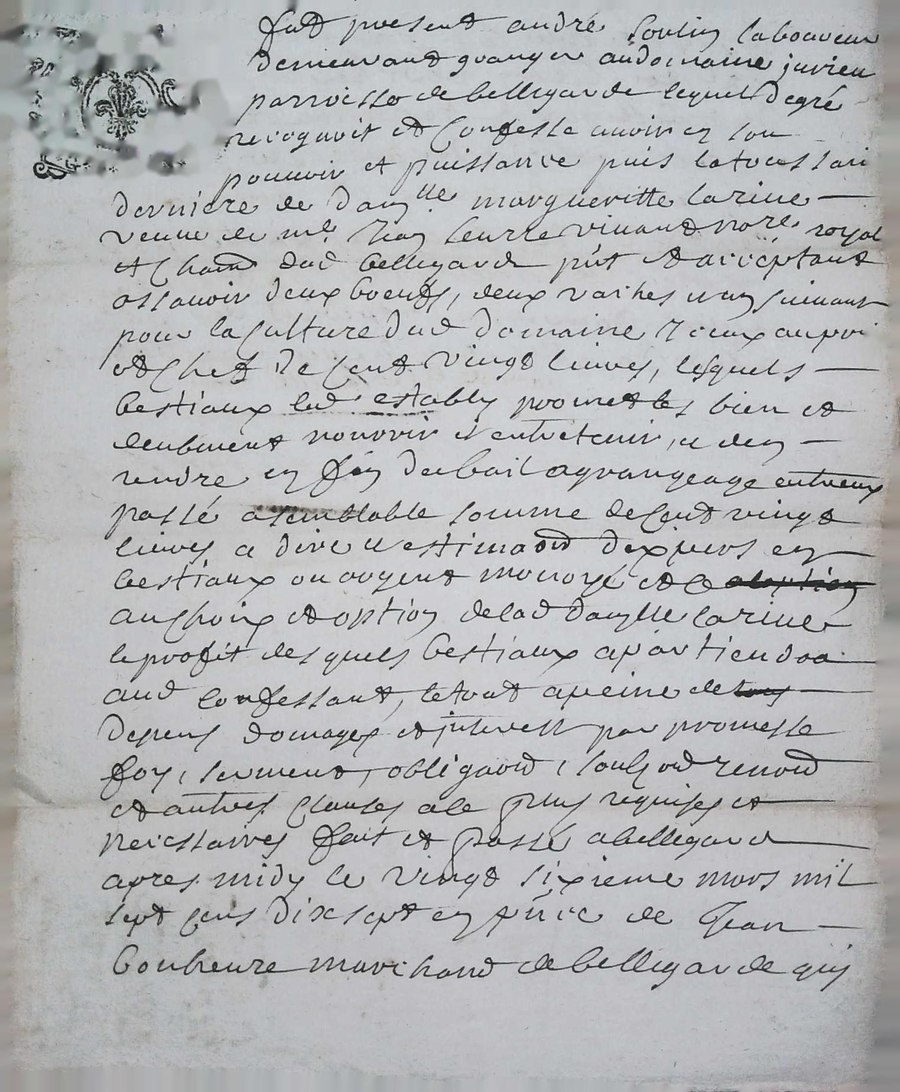 fut present andré laboureur
demeurant granger au domaine jurieu
parroisse de bellegarde lequel de gré
recognoit et Confesse avoir en son
pouvoir et puissance puis la toussain
derniere de dam.lle margueritte larine
veuve de m.e vivand no.re royal
et Chain dud bellegarde p.nt et acceptant
assavoir deux boeufs, deux vaches
pour la Culture dud domaine
et Chef de Cent vingt livres, lesquels
bestiaux led estably promet les bien et
deubment nourrir et entretenir, et den
rendre en fin du bail a grangeage entreux
passé a semblable somme de Cent vingt
livres a dire et estimaon dexpers en
bestiaux ou argent monoyé et ce
au Choix et option de lad damlle larine
le profit desquels bestiaux apartiendra
aud Confessant, le tout a peine de
depens domages et interest par promesse
foy, serment, obligaon, renon
et autres clauses a ce plus requises et
necessaires fait et passé a bellegarde
apres midy le vingt sixieme mars mil
sept cens dix sept en p.nce de Jean
bonheure marchand de bellegarde quy